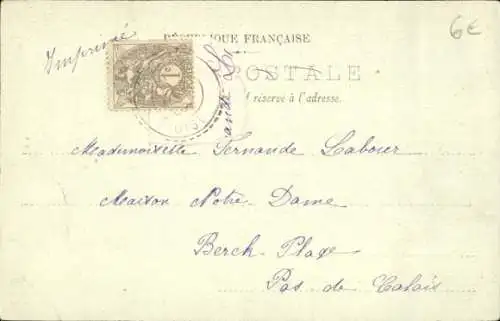 Imprimé
RÉPUBLIQUE FRANÇAISE
6€
POSTALE
réservé à l'adresse.
1c
OISE
Mademoiselle Fernande Labour
Maison Notre-Dame
Berck-Plage
Pas de Calais